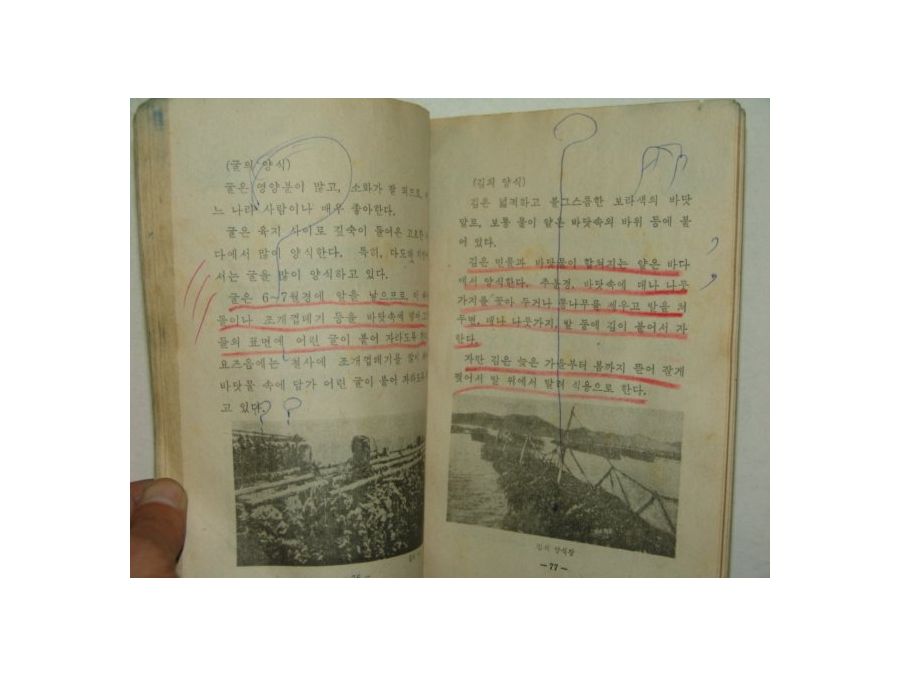 (굴의 양식)
굴은 영양분이 많고, 소화가 잘 되므로,
느 나라 사람이나 매우 좋아한다.
굴은 육지 사이로 깊숙이 들어온 고요한
다에서 많이 양식한다. 특히, 다도해
서는 굴을 많이 양식하고 있다.
굴은 6~7월경에 알을 낳으므로,
돌이나 조개껍데기 등을 바닷속에
들의 표면에 어린 굴이 붙어 자라도록
요즈음에는 철사에 조개껍데기를 많이
바닷물 속에 담가 어린 굴이 붙어 자라도록
고 있다.
(김의 양식)
김은 넓적하고 불그스름한 보라색의 바닷
말로, 보통 물이 얕은 바닷속의 바위 등에 붙
어 있다.
김은 민물과 바닷물이 합쳐지는 얕은 바다
에서 양식한다. 추분경, 바닷속에 대나 나뭇
가지를 꽂아 두거나 통나무를 세우고 발을 쳐
두면, 대나 나뭇가지, 발 들에 김이 붙어서 자
란다.
자란 김은 늦은 가을부터 봄까지 뜯어 잘게
찢어서 발 위에서 말려 식용으로 한다.
김의 양식장
-77-